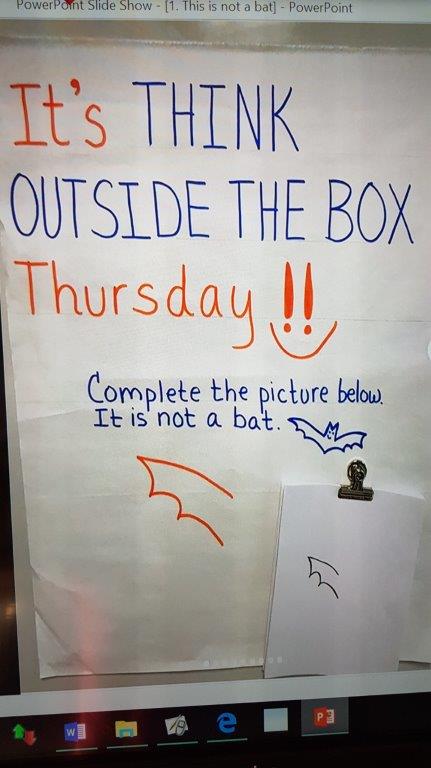 PowerPoint Slide Show - [1. This is not a bat] - PowerPoint
It's THINK
OUTSIDE THE BOX
Thursday !!
Complete the picture below.
It is not a bat.